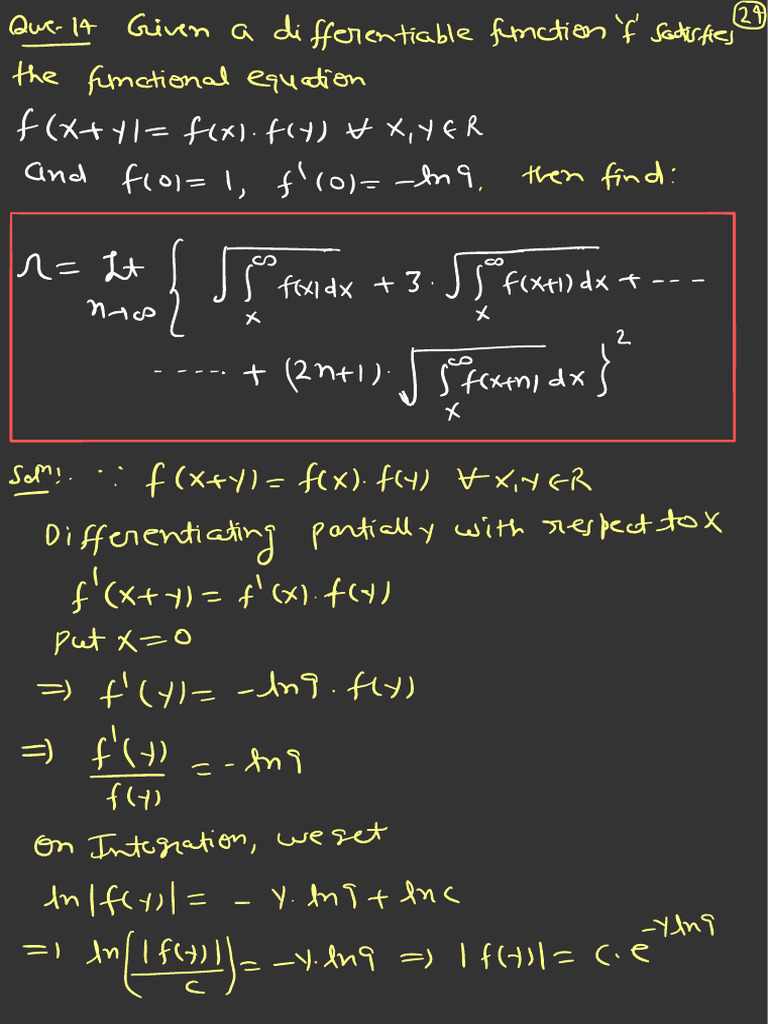 Que-14 Given a differentiable function 'f' satisfies (24)
the functional equation
f(x+y)= f(x).f(y) ∀ x,y ∈ R
and f(0)= 1, f'(0)= -ln9, then find:
Λ = Lt n→∞ { √(∫_x^∞ f(x)dx) + 3.√(∫_x^∞ f(x+1)dx) + ---
----- + (2n+1).√(∫_x^∞ f(x+n)dx) }^2
Solⁿ!. ∵ f(x+y)= f(x).f(y) ∀ x,y ∈ R
Differentiating partially with respect to x
f'(x+y)= f'(x).f(y)
put x=0
=> f'(y)= -ln9.f(y)
=> f'(y)/f(y) = -ln9
on Integration, we get
ln|f(y)|= - y.ln9 + lnc
=> ln(|f(y)|/c)= -y.ln9 => |f(y)|= c.e^{-yln9}